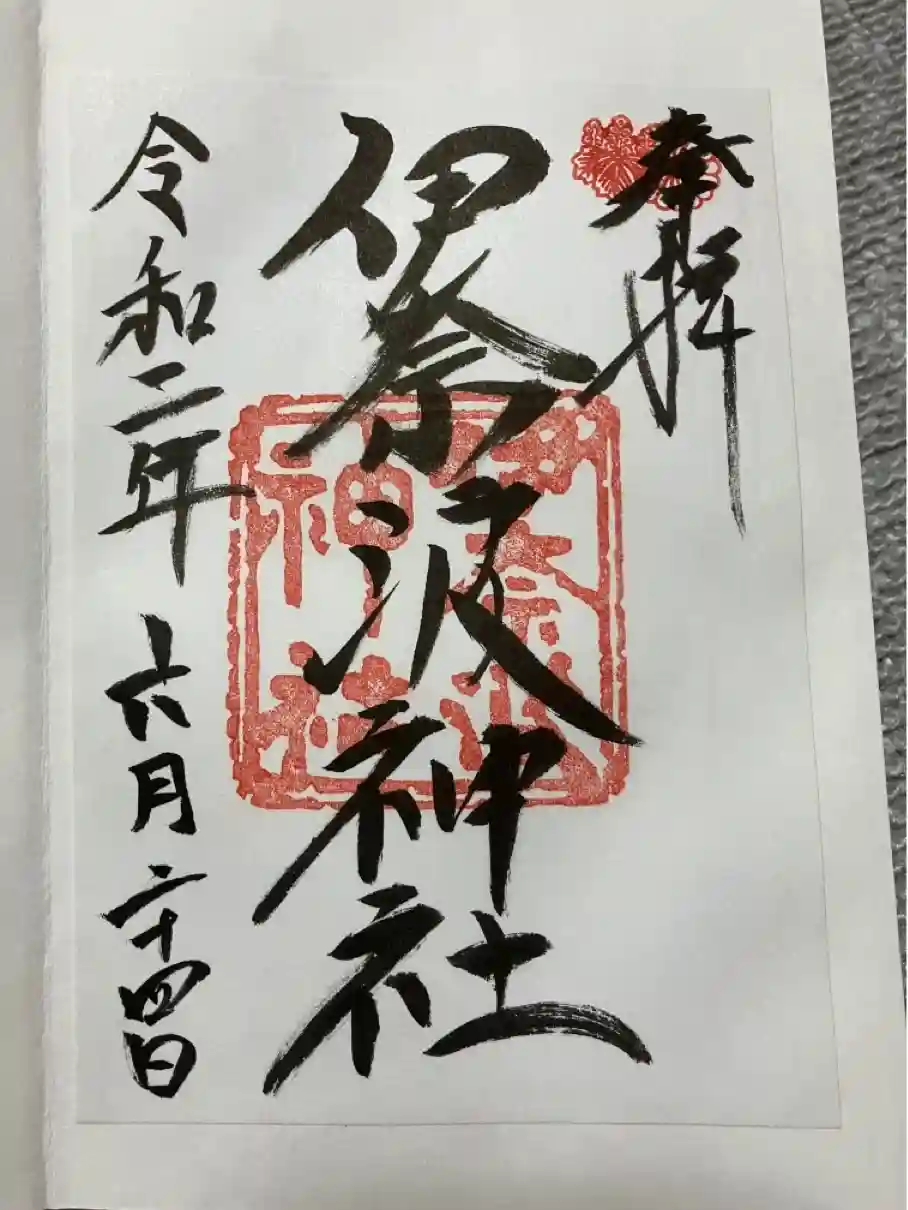 奉拝
伊奈波神社
令和二年六月二十四日
伊奈波
神社